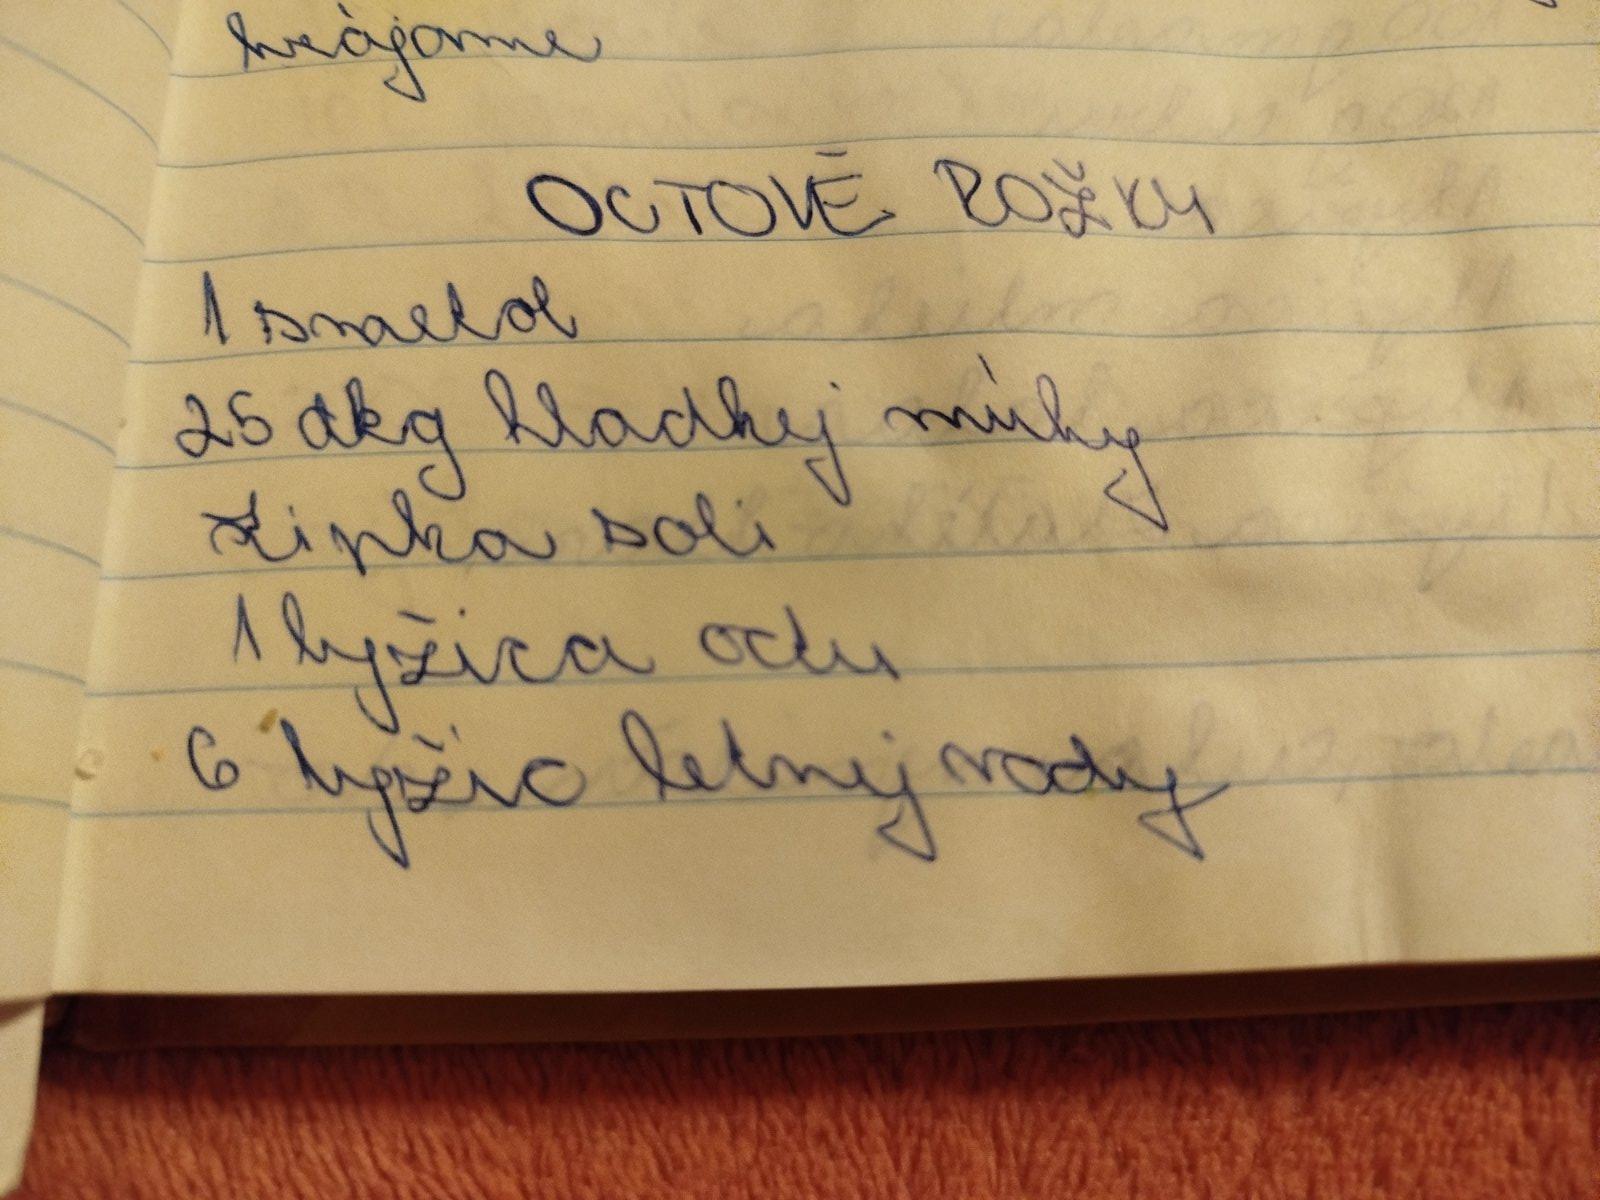 krájame
OCTOVÉ ROŽKY
1 smetol
25 dkg hladkej múky
štipka soli
1 lyžica octu
6 lyžic letnej vody